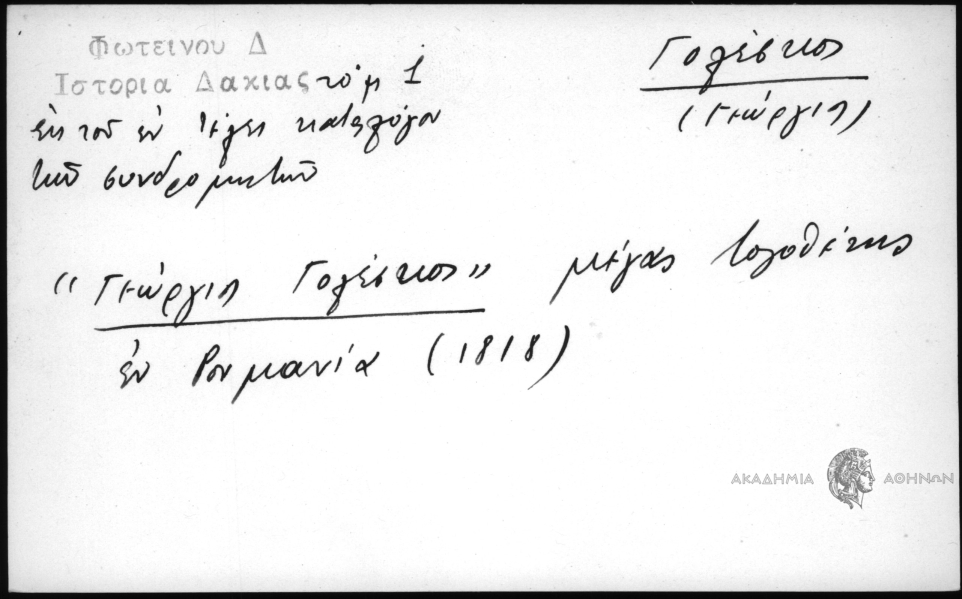 Φωτεινου Δ
Ιστορια Δακιας τόμ 1
εκ του εν τέλει καταλόγου
των συνδρομητών
Γολέσκος
(Γεώργιος)
"Γεώργιος Γολέσκος" μέγας λογοθέτης
εν Ρουμανία (1818)
ΑΚΑΔΗΜΙΑ ΑΘΗΝΩΝ